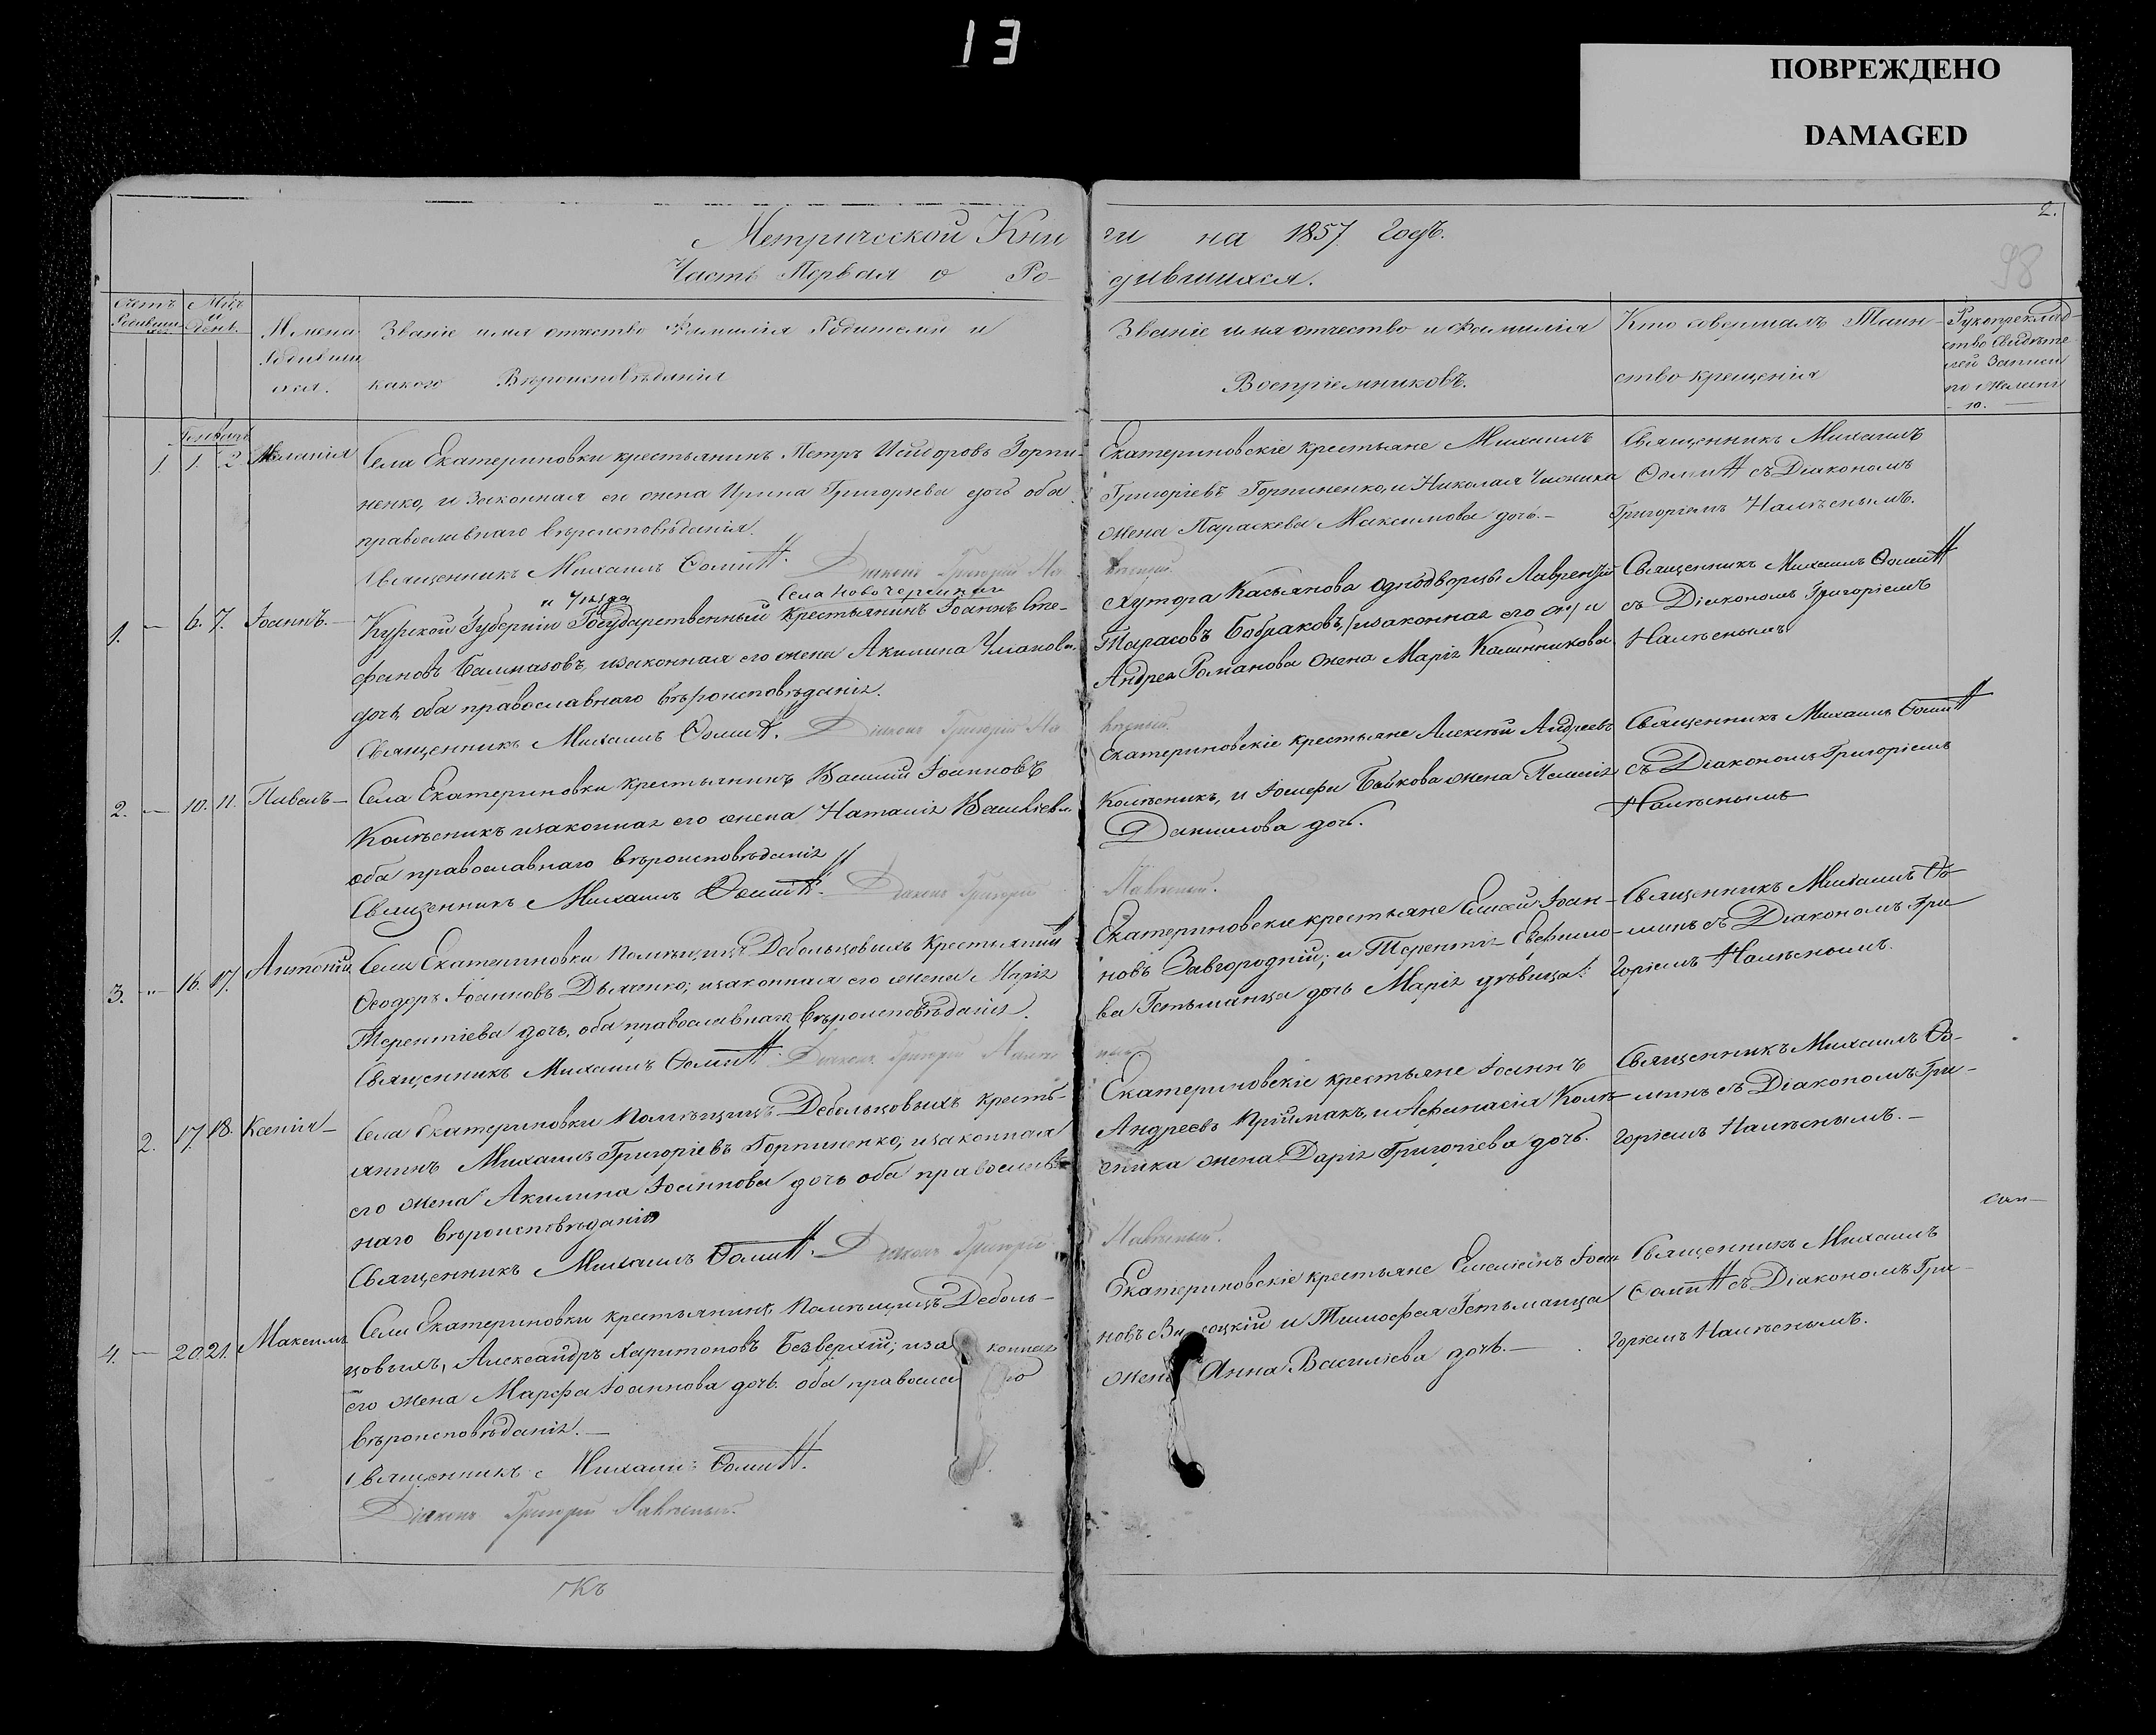 13
ПОВРЕЖДЕНО
DAMAGED
2.
98
Метрической Книги на 1857 годъ.
Часть Первая о Родившихся.
Счетъ Родивших.
Мцъ и День.
Имена Родившихся.
Званіе имя отчество Фамилія Родителей и
какого Вероисповѣданія
Званіе имя отчество и Фамилія
Воспріемниковъ.
Кто совершалъ Таин-
ство крещенія
Рукоприклад-
ство свидѣте
лей Записи
по желанію
10.
Генварь
1. 1. 2. Меланія
Села Екатериновки крестьянинъ Петръ Исидоровъ Горпи-
ненко, и законная его жена Ирина Григорьева дочь оба
православнаго вѣроисповѣданія.
Священникъ Михаилъ Ѳоминъ. Діаконъ Григорій
Екатериновскіе крестьяне Михаилъ
Григоріевъ Горпиненко, и Николая
жена Параскева Максимова дочь.-
Священникъ Михаилъ
Ѳоминъ съ Діакономъ
Григоріемъ
1. — 6. 7. Іоаннъ.
" уѣзда Села
Курской Губерніи Государственный крестьянинъ Іоаннъ Сте-
фановъ законная его жена Акилина
дочь, оба православнаго вѣроисповѣданія.
Священникъ Михаилъ Ѳоминъ. Діаконъ Григорій
Хутора Касьянова Однодворцы Лаврентій
Тарасовъ Бобраковъ,
Андрея Романова жена Марія Калинникова
Священникъ Михаилъ Ѳоминъ
съ Діакономъ Григоріемъ
2. — 10. 11. Павелъ —
Села Екатериновки крестьянинъ Василій Іоанновъ
Колѣсникъ изаконная его жена Наталія Василіева
оба православнаго вѣроисповѣданія
Священникъ Михаилъ Ѳоминъ. Діаконъ Григорій
Екатериновскіе крестьяне Алексѣй Андреевъ
Колѣсникъ, и Іосифа Байкова жена Пелагія
Данилова дочь.
Священникъ Михаилъ Ѳоминъ
съ Діакономъ Григоріемъ
3. — 16. 17. Антоній
Села Екатериновки помѣщицъ Дебольцовыхъ крестьянинъ
Ѳеодоръ Іоанновъ Дьяченко; изаконная его жена Марія
Терентіева дочь, оба православнаго вѣроисповѣданія.
Священникъ Михаилъ Ѳоминъ. Діаконъ Григорій
Екатериновски крестьяне Іоан-
новъ Завгородній; и Терентія
ва Гетьманца дочь Марія дѣвица.
Священникъ Михаилъ Ѳо-
минъ съ Діакономъ Гри
горіемъ
2. 17. 18. Ксенія —
Села Екатериновки помѣщицъ Дебольцовыхъ кресть-
янинъ Михаилъ Григоріевъ Горпиненко; изаконная
его жена Акилина Іоаннова дочь оба православ-
наго вѣроисповѣданія
Священникъ Михаилъ Ѳоминъ. Діаконъ Григорій
Екатериновскіе крестьяне Іоаннъ
Андреевъ Приймакъ, и Афанасія Колѣ-
сника жена Дарія Григоріева дочь.
Священникъ Михаилъ Ѳо-
минъ съ Діакономъ Гри-
горіемъ
4. — 20. 21. Максимъ
Села Екатериновки крестьянинъ, помѣщицъ Деболь-
цовыхъ, Александръ Харитоновъ Безверхій; иза конная
его жена Марфа Іоаннова дочь. оба правосла го
вѣроисповѣданія. —
Священникъ Михаилъ Ѳоминъ.
Діаконъ Григорій
Екатериновскіе крестьяне Емеліанъ Іоан
новъ соцкій и Тимофея Гетьманца
жена Анна Василіева дочь. —
Священникъ Михаилъ
Ѳоминъ съ Діакономъ Гри-
горіемъ